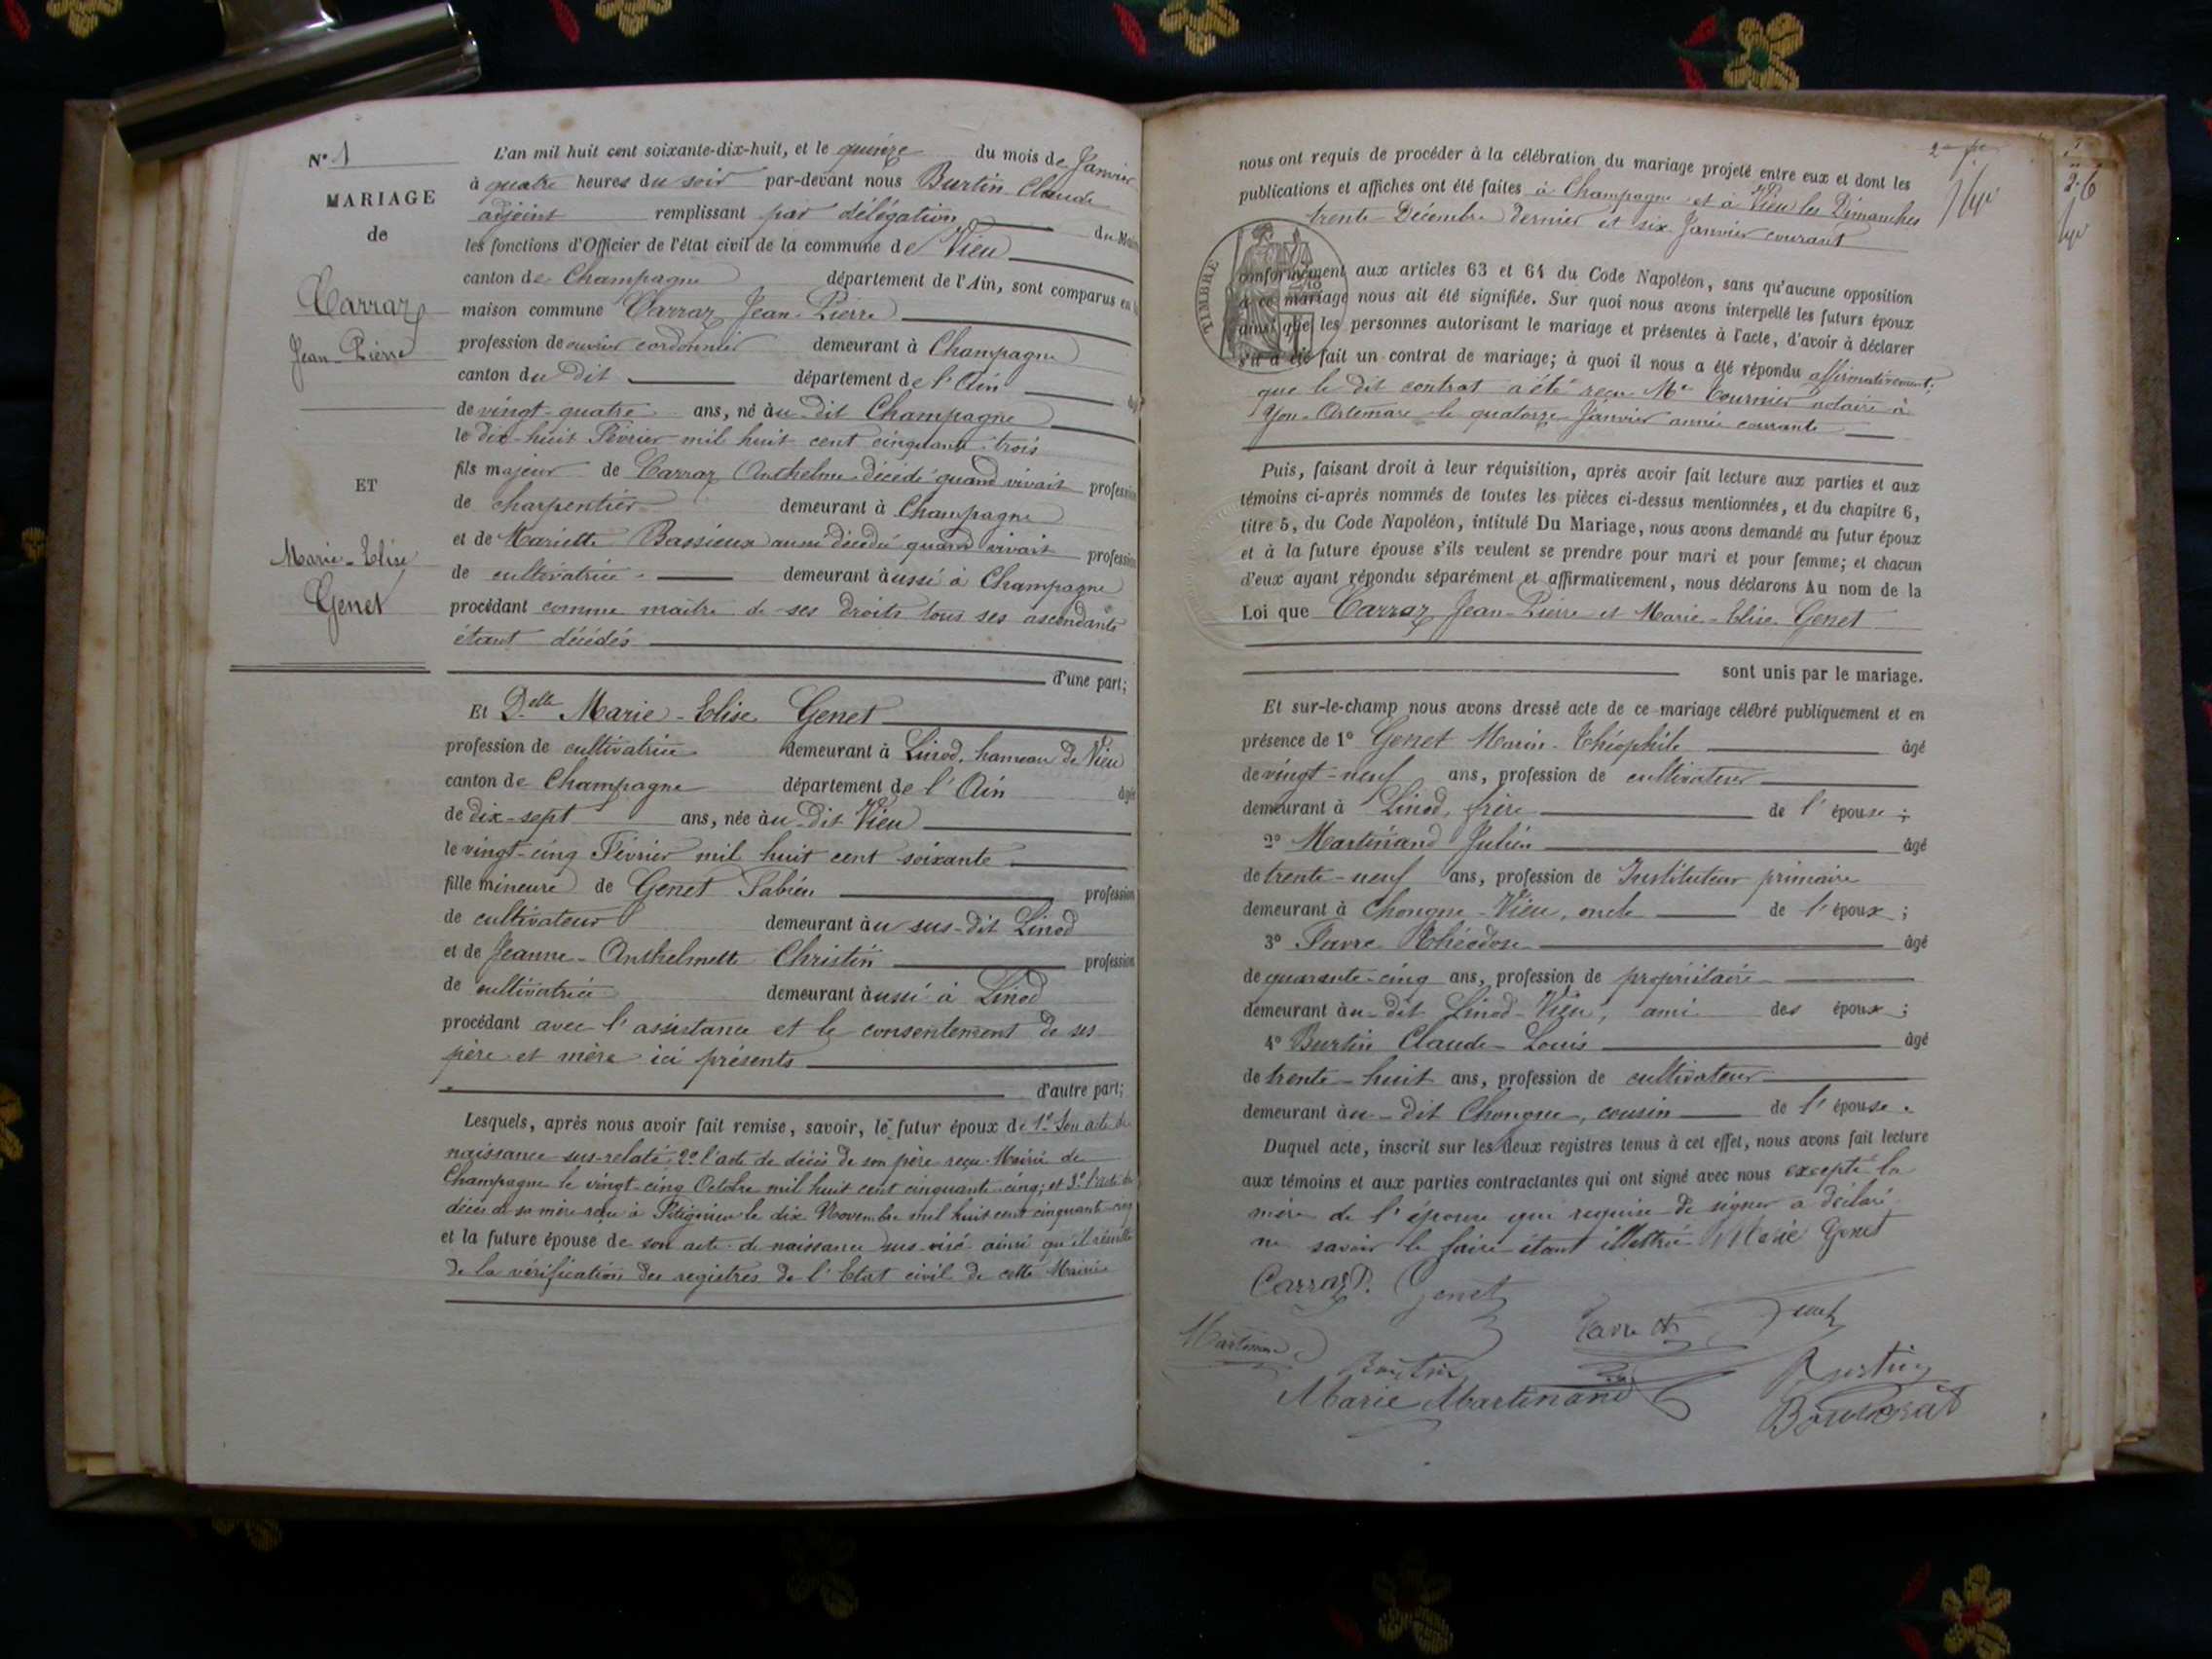 N° 1
MARIAGE
de
Carraz
Jean-Pierre
ET
Marie-Elise
Genet
L'an mil huit cent soixante-dix-huit, et le quinze du mois de Janvier
à quatre heures du soir par-devant nous Burtin Claude
adjoint remplissant par délégation du Maire
les fonctions d'Officier de l'état civil de la commune de Vieu
canton de Champagne département de l'Ain, sont comparus en la
maison commune Carraz Jean-Pierre
profession de ouvrier cordonnier demeurant à Champagne
canton du dit département de l'Ain âgé
de vingt-quatre ans, né au dit Champagne
le dix-huit Février mil huit cent cinquante-trois
fils majeur de Carraz Anthelme décédé quand vivait profession
de charpentier demeurant à Champagne
et de Mariette Bassieux aussi décédée quand vivait profession
de cultivatrice demeurant aussi à Champagne
procédant comme maître de ses droits tous ses ascendants
étant décédés
d'une part;
Et Delle Marie-Elise Genet
profession de cultivatrice demeurant à Linod, hameau de Vieu
canton de Champagne département de l'Ain âgée
de dix-sept ans, née au dit Vieu
le vingt-cinq Février mil huit cent soixante
fille mineure de Genet Fabien profession
de cultivateur demeurant au sus-dit Linod
et de Jeanne-Anthelmette Christin profession
de cultivatrice demeurant aussi à Linod
procédant avec l'assistance et le consentement de ses
père et mère ici présents
d'autre part;
Lesquels, après nous avoir fait remise, savoir, le futur époux de 1° Son acte de
naissance sus-relaté, 2° l'acte de décès de son père reçu Mairie de
Champagne le vingt-cinq Octobre mil huit cent cinquante-cinq; et 3° l'acte de
décès de sa mère reçu à le dix Novembre mil huit cent cinquante-cinq
et la future épouse de son acte de naissance sus-visé ainsi qu'il résulte
de la vérification des registres de l'Etat civil de cette Mairie
nous ont requis de procéder à la célébration du mariage projeté entre eux et dont les
publications et affiches ont été faites à Champagne et à Vieu les Dimanches
trente Décembre dernier et six Janvier courant
TIMBRE
conformément aux articles 63 et 64 du Code Napoléon, sans qu'aucune opposition
à ce mariage nous ait été signifiée. Sur quoi nous avons interpellé les futurs époux
ainsi que les personnes autorisant le mariage et présentes à l'acte, d'avoir à déclarer
s'il a été fait un contrat de mariage; à quoi il nous a été répondu affirmativement;
que le dit contrat a été reçu Me Tournier notaire à
Yon-Artemare le quatorze Janvier année courante
Puis, faisant droit à leur réquisition, après avoir fait lecture aux parties et aux
témoins ci-après nommés de toutes les pièces ci-dessus mentionnées, et du chapitre 6,
titre 5, du Code Napoléon, intitulé Du Mariage, nous avons demandé au futur époux
et à la future épouse s'ils veulent se prendre pour mari et pour femme; et chacun
d'eux ayant répondu séparément et affirmativement, nous déclarons Au nom de la
Loi que Carraz Jean-Pierre et Marie-Elise Genet
sont unis par le mariage.
Et sur-le-champ nous avons dressé acte de ce mariage célébré publiquement et en
présence de 1° Genet Marin-Théophile âgé
de vingt-neuf ans, profession de cultivateur
demeurant à Linod, frère de l'épouse;
2° Martinand Julien âgé
de trente-neuf ans, profession de Instituteur primaire
demeurant à Chongne-Vieu, oncle de l'époux;
3° Favre Théodose âgé
de quarante-cinq ans, profession de propriétaire
demeurant au-dit Linod-Vieu, ami des époux;
4° Burtin Claude-Louis âgé
de trente-huit ans, profession de cultivateur
demeurant au-dit Chongne, cousin de l'épouse.
Duquel acte, inscrit sur les deux registres tenus à cet effet, nous avons fait lecture
aux témoins et aux parties contractantes qui ont signé avec nous excepté la
mère de l'épouse qui requise de signer a déclaré
ne savoir le faire étant illettrée Marie Genet
Carraz P. Genet
Favre Th
Martinand
Burtin
Marie Martinand
26